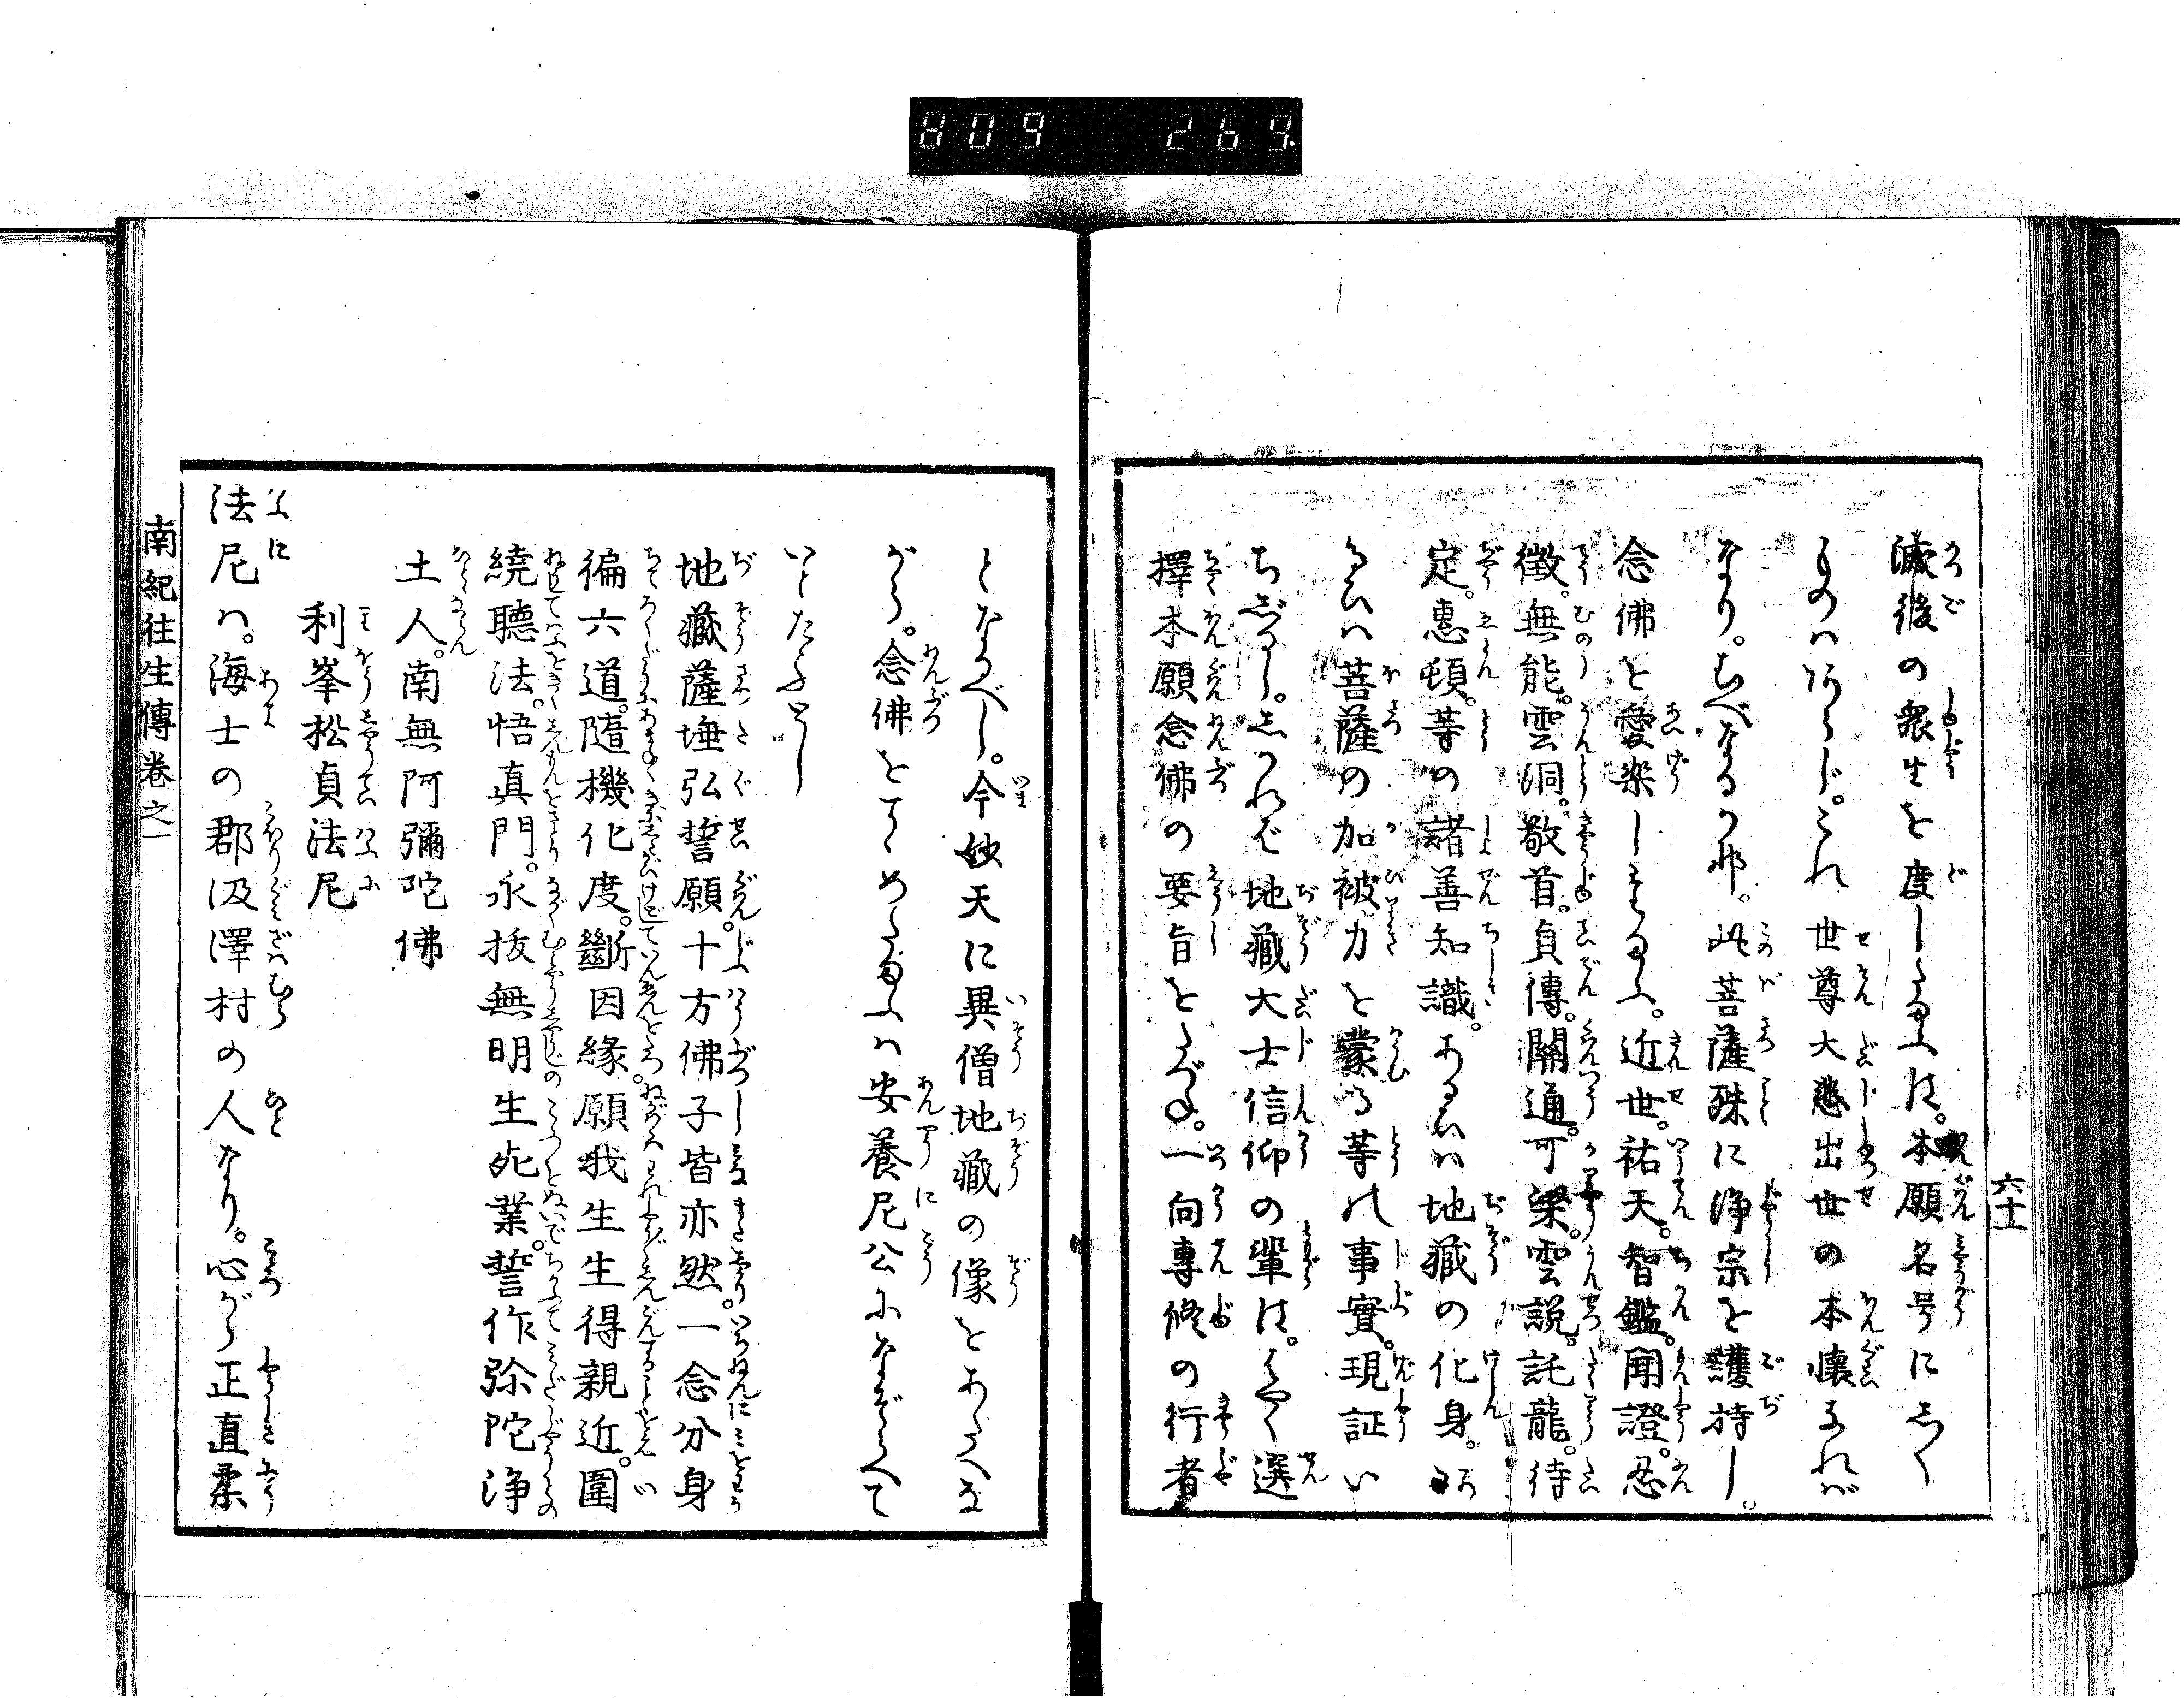 809 269
六十一
滅後の衆生を度したまふは。本願名号にしく
ものはあらじ。これ世尊大悲出世の本懐なれば
なり。むべなるかな。此菩薩殊に浄宗を護持し。
念佛を愛楽したまふ。近世。祐天。智鑑。聞證。忍
徴。無能。雲洞。敬首。貞傳。關通。可梁。雲説。託龍。待
定。惠頓。等の諸善知識。あるひは地蔵の化身。
あるひは菩薩の加被力を蒙る等の事實。現証い
ちじるし。しかれば地蔵大士信仰の輩は。はやく選
擇本願念佛の要旨をたづね。一向專修の行者
となるべし。今妙天に異僧地蔵の像をあたへな
がら。念佛をすゝめたまふは安養尼公になぞらへて
いとたふとし
地蔵薩埵弘誓願。十方佛子皆亦然。一念分身
徧六道。隨機化度。斷因緣願我生生得親近。圍
繞聽法。悟真門。永拔無明生死業。誓作弥陀淨
土人。南無阿彌陀佛
利峯松貞法尼
法尼は。海士の郡汲澤村の人なり。心がら正直柔
南紀往生傳卷之一